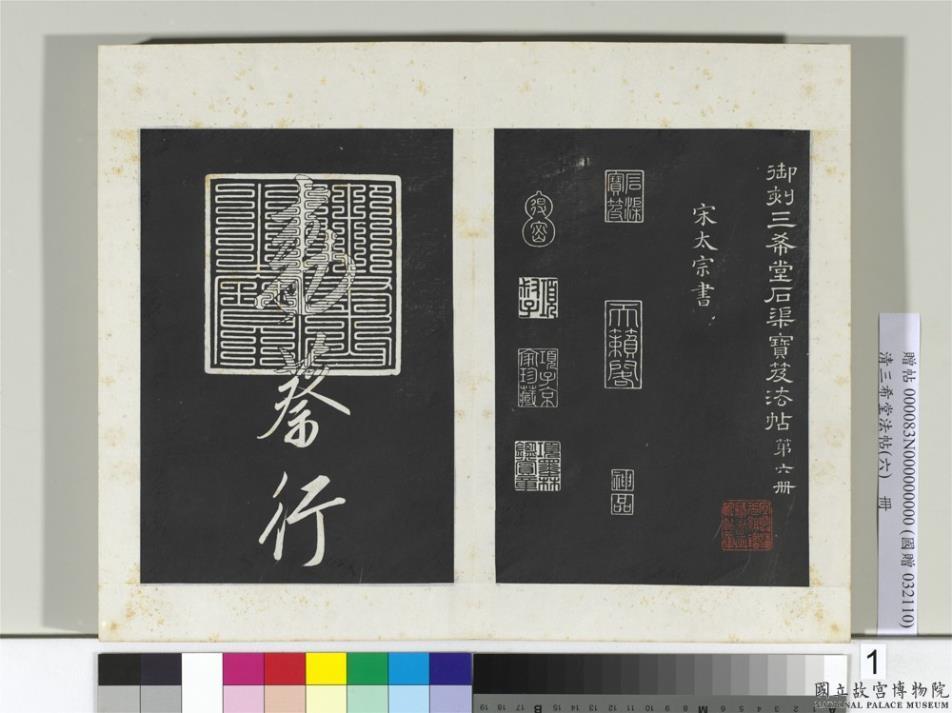 御刻三希堂石渠寶笈法帖第六冊
宋太宗書
石渠寶笈
天籟閣
神品
項子京家珍藏
項墨林鑑賞章
勅蔡行
贈帖 000083N000000000 (國贈 032110)
清三希堂法帖(六) 冊
1
國立故宮博物院
NATIONAL PALACE MUSEUM